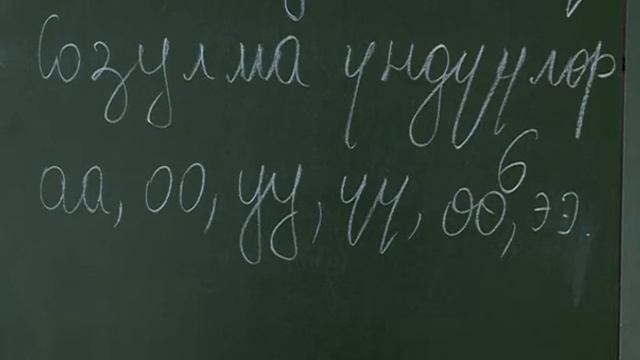 Созулма үндүүлөр
аа, оо, уу, үү, өө, ээ.
6